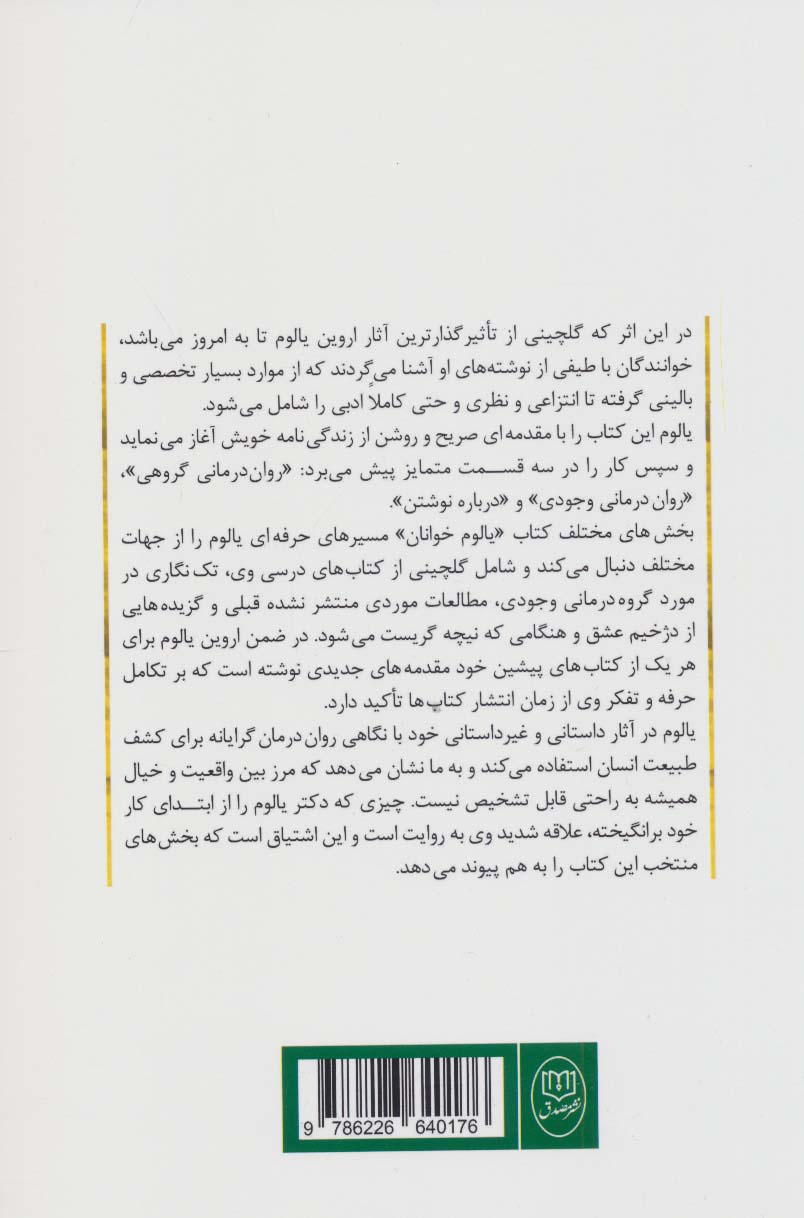 در این اثر که گلچینی از تأثیرگذارترین آثار اروین یالوم تا به امروز می‌باشد،
خوانندگان با طیفی از نوشته‌های او آشنا می‌گردند که از موارد بسیار تخصصی و
بالینی گرفته تا انتزاعی و نظری و حتی کاملاً ادبی را شامل می‌شود.
یالوم این کتاب را با مقدمه‌ای صریح و روشن از زندگی‌نامه خویش آغاز می‌نماید
و سپس کار را در سه قسمت متمایز پیش می‌برد: «روان‌درمانی گروهی»،
«روان‌درمانی وجودی» و «درباره نوشتن».
بخش‌های مختلف کتاب «یالوم خوانان» مسیرهای حرفه‌ای یالوم را از جهات
مختلف دنبال می‌کند و شامل گلچینی از کتاب‌های درسی وی، تک‌نگاری در
مورد گروه‌درمانی وجودی، مطالعات موردی منتشر نشده قبلی و گزیده‌هایی
از دژخیم عشق و هنگامی که نیچه گریست می‌شود. در ضمن اروین یالوم برای
هر یک از کتاب‌های پیشین خود مقدمه‌های جدیدی نوشته است که بر تکامل
حرفه و تفکر وی از زمان انتشار کتاب‌ها تأکید دارد.
یالوم در آثار داستانی و غیرداستانی خود با نگاهی روان‌درمان‌گرایانه برای کشف
طبیعت انسان استفاده می‌کند و به ما نشان می‌دهد که مرز بین واقعیت و خیال
همیشه به راحتی قابل تشخیص نیست. چیزی که دکتر یالوم را از ابتدای کار
خود برانگیخته، علاقه شدید وی به روایت است و این اشتیاق است که بخش‌های
منتخب این کتاب را به هم پیوند می‌دهد.
نشر مصدق
9 786226 640176